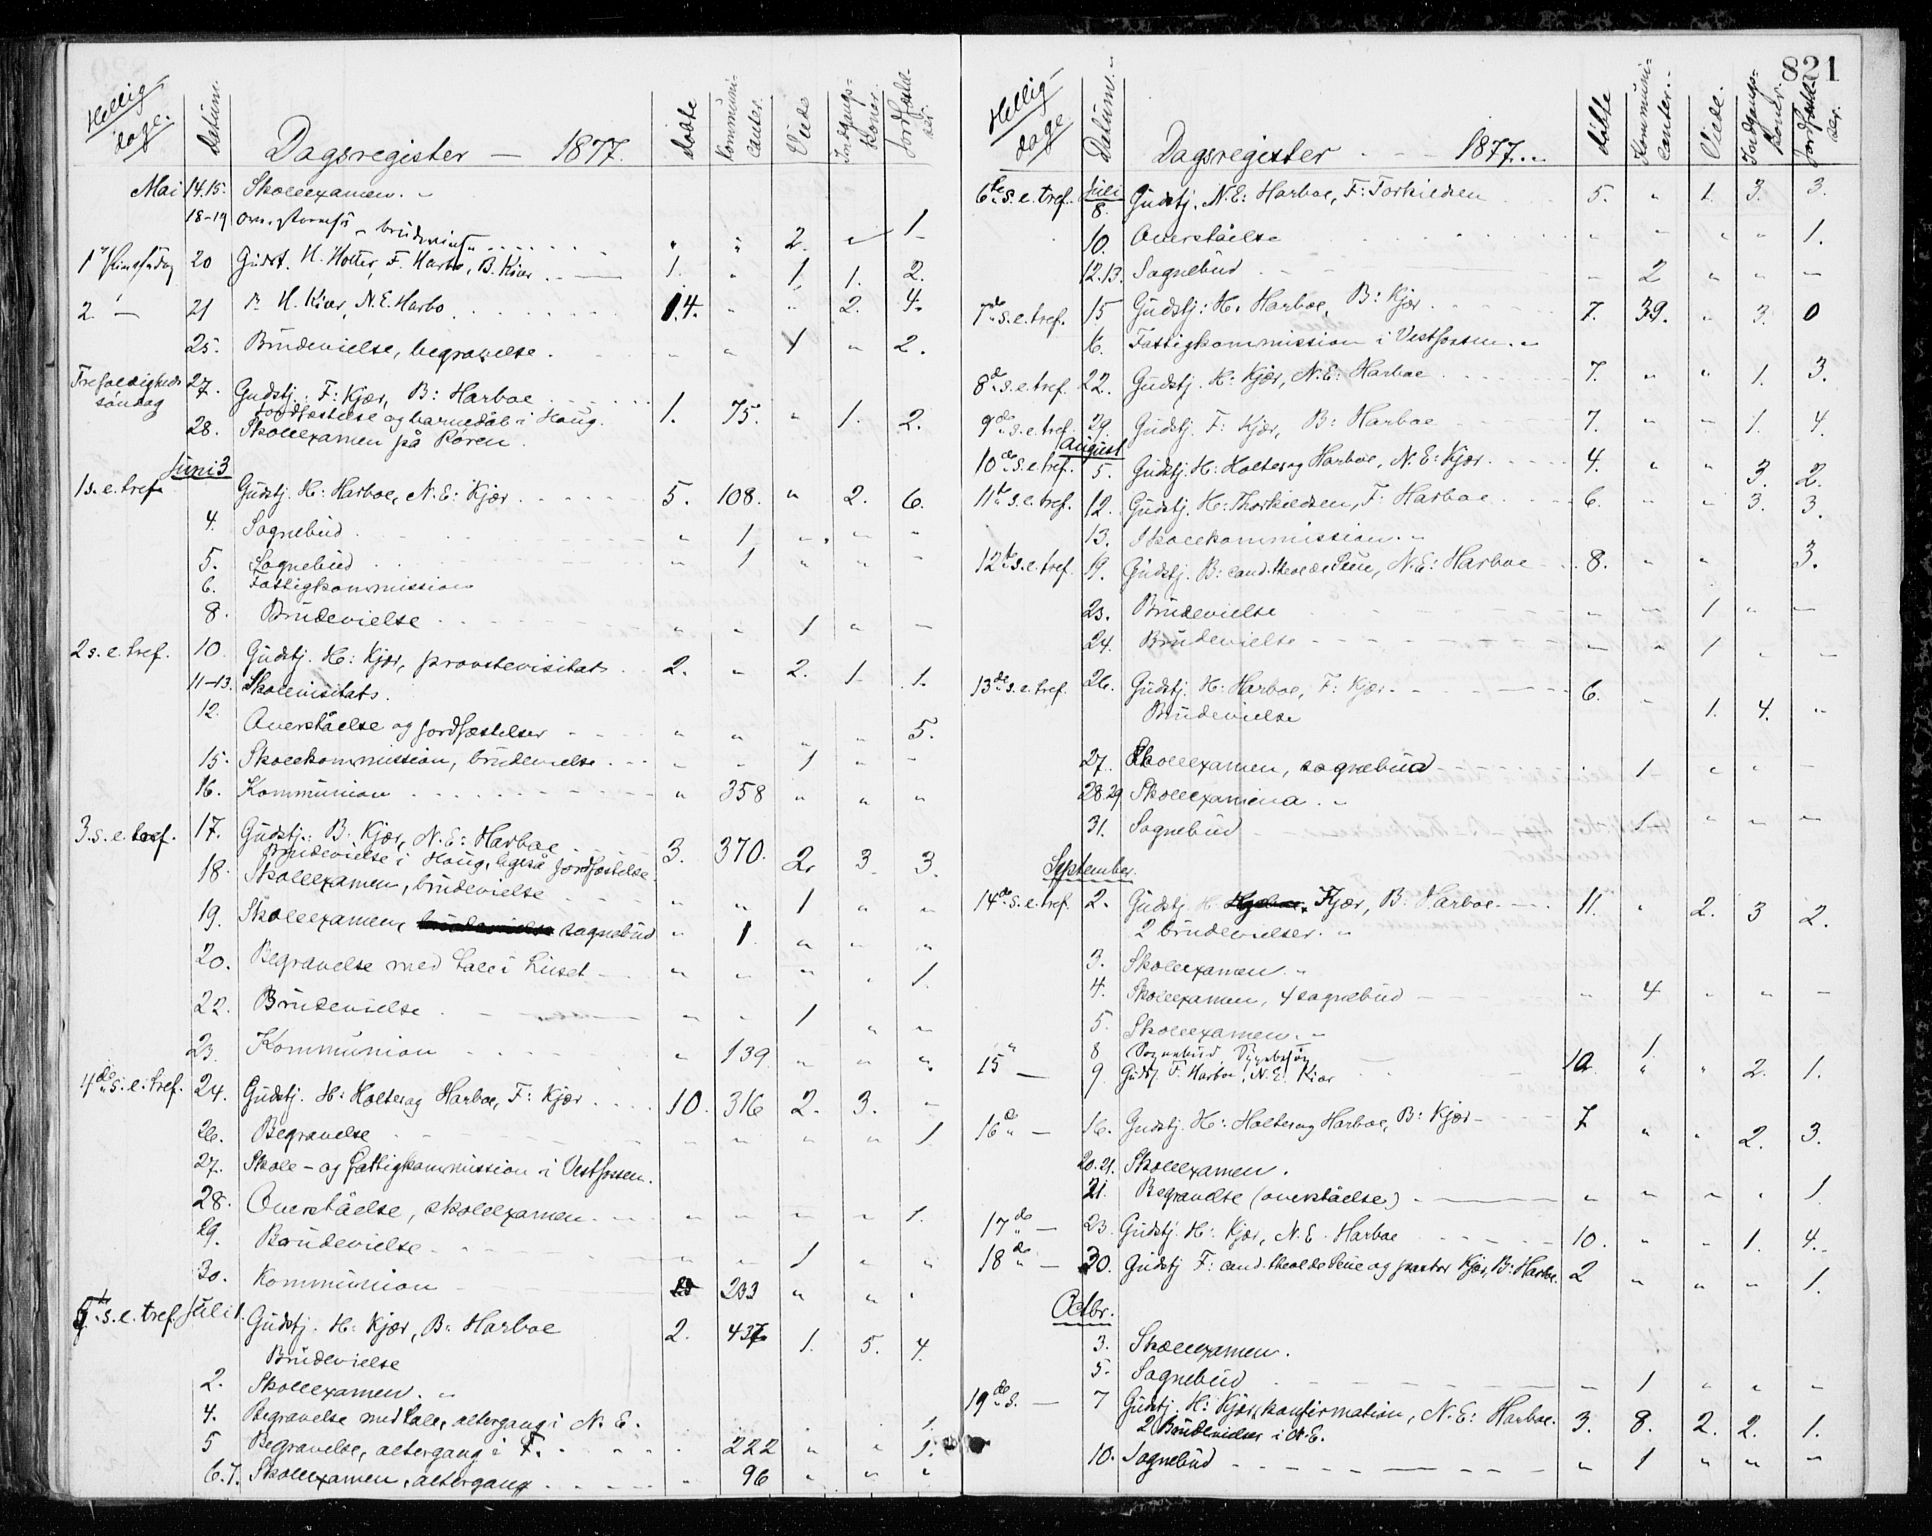 821
Hellig-dage. Datum. Dagsregister — 1877. døbte Kommunicanter. Viede Indgangskoner. Jordfæstelser
Mai 14.15. Skoleexamen. "
18-19 brudevielse " " 2. " 1
1 Pinsedag 20 Gudst. H. Holter, F. Harbo, B. Kiær 1. " 1. 1. 2.
2. — 21 H. Kiær, N. E. Harbo 14. " " 2. 4.
25. Brudevielse, begravelse. " " 1 " 2.
Trefoldigheds søndag 27. Gudstj.: F: Kjær, B: Harboe 1. 75. " 1. 2.
Jordfæstelse og barnedåb i Houg.
28. Skoleexamen på Roren.
Juni 3
1 s. e. tref. Gudstj. H: Harboe, N. E: Kjær 5. 108. " 2. 6.
4. Sognebud " 1 " " "
5. Sognebud " 1 " " "
6. Fattigkommission
8. Brudevielse " " 1 " —
2 s. e. tref. 10. Gudstj. H: Kjær, provstevisitats 2. " 2. 1. 1.
11-13. Skolevisitats.
12. Overståelse og jordfæstelser " " " " 5.
15. Skolekommission, brudevielse " " 1 " "
16. Kommunion " 358 " " "
3. s. e. tref. 17. Gudstj.: B: Kjær, N. E: Harboe 3. 370. 2. 3. 3.
Brudevielse i Houg, ligeså jordfæstelse.
18. Skoleexamen, brudevielse " " 1 " "
19. Skoleexamen, sognebud " 1 " " "
20. Begravelse med tale i huset " " " " 1.
22. Brudevielse " " 1 " "
23. Kommunion " 139 " " "
4de s. e. tref. 24. Gudstj. H: Holter og Harboe, F: Kjær 10. 316 2. 3. —
26. Begravelse " " " " 1
27. Skole- og fattigkommission i Vestfossen.
28. Overståelse, skoleexamen " " " " 1.
29. Brudevielse " " 1 " "
30. Kommunion 233 " " "
5te s. e. tref. Juli 1. Gudstj. H: Kjær, B: Harboe 2. 437 1. 5. 4.
Brudevielse
2. Skoleexamen. "
4. Begravelse med tale, altergang i N. E. 1.
5 Begravelse, altergang i F. 222 " " 1.
6.7. Skoleexamen, altergang " 96 " " "
Hellig-dage Datum. Dagsregister — 1877. døbte Kommunicanter. Viede. Indgangskoner. Jordfæstelser.
6te s. e. tref. Juli 8. Gudstj. N. E: Harboe, F: Torkildsen 5. " 1. 3. 3.
10. Overståelse " " " " 1.
12.13. Sognebud — 2 " " —
7de s. e. tref. 15 Gudstj: H: Harboe, B: Kjær 7. 39. " 3. 0
16. Fattigkommission i Vestfossen. "
8de s. e. tref. 22. Gudstj. H: Kjær, N. E: Harboe 7. " " 1. 3.
9de s. e. tref. 29. Gudstj. F: Kjær, B: Harboe 7. " " 1. 4.
August
10de s. e. tref. 5. Gudstj. H: Holter og Harboe, N. E: Kjær 4. " " 3. 2.
11te s. e. tref. 12. Gudstj. H: Thorkildsen, F: Harboe 6. " " 3. 3.
13. Skolekommission. "
12te s. e. tref. 19. Gudstj. B: cand. theol de Seue, N. E: Harboe 8. " " 3.
23. Brudevielse — — 1 " —
24. Brudevielse — " 1 " "
13de s. e. tref. 26. Gudstj. H: Harboe, F: Kjær 6. " 1. 4. "
Brudevielse
27. Skoleexamen, sognebud 1 " " —
28.29 Skoleexamina. "
31. Sognebud 1 " " —
September.
14de s. e. tref. 2. Gudstj. H: Kjær, B: Harboe 11. " 2. 3 2.
2 brudevielser. "
3. Skoleexamen. "
4. Skoleexamen, 4 sognebud " 4 " " —
5. Skoleexamen. "
8 Sognebud, Sygebesøg 1.
15 — 9. Gudstj. F. Harboe, N. E. Kiær 10 " " 2. 1.
16de — 16. Gudstj. H: Holter og Harboe, B: Kjær 7 " " 2. 3.
20.21. Skoleexamen.
21. Begravelse (overståelse) " " " " 1.
17de — 23. Gudstj. H: Kjær, N. E. Harboe 10. " " 1. 4.
18de — 30. Gudstj F: cand. theol de Seue og pastor Kjær, B: Harboe. 2 " " " 1.
Octbr.
3. Skoleexamen.
5. Sognebud — 1 " " "
19de S. — 7 Gudstj. H: Kjær, konfirmation, N. E: Harboe. 3. 8. 2. 2. 1.
2 Brudevielser i N. E.
10. Sognebud " 1 " " "